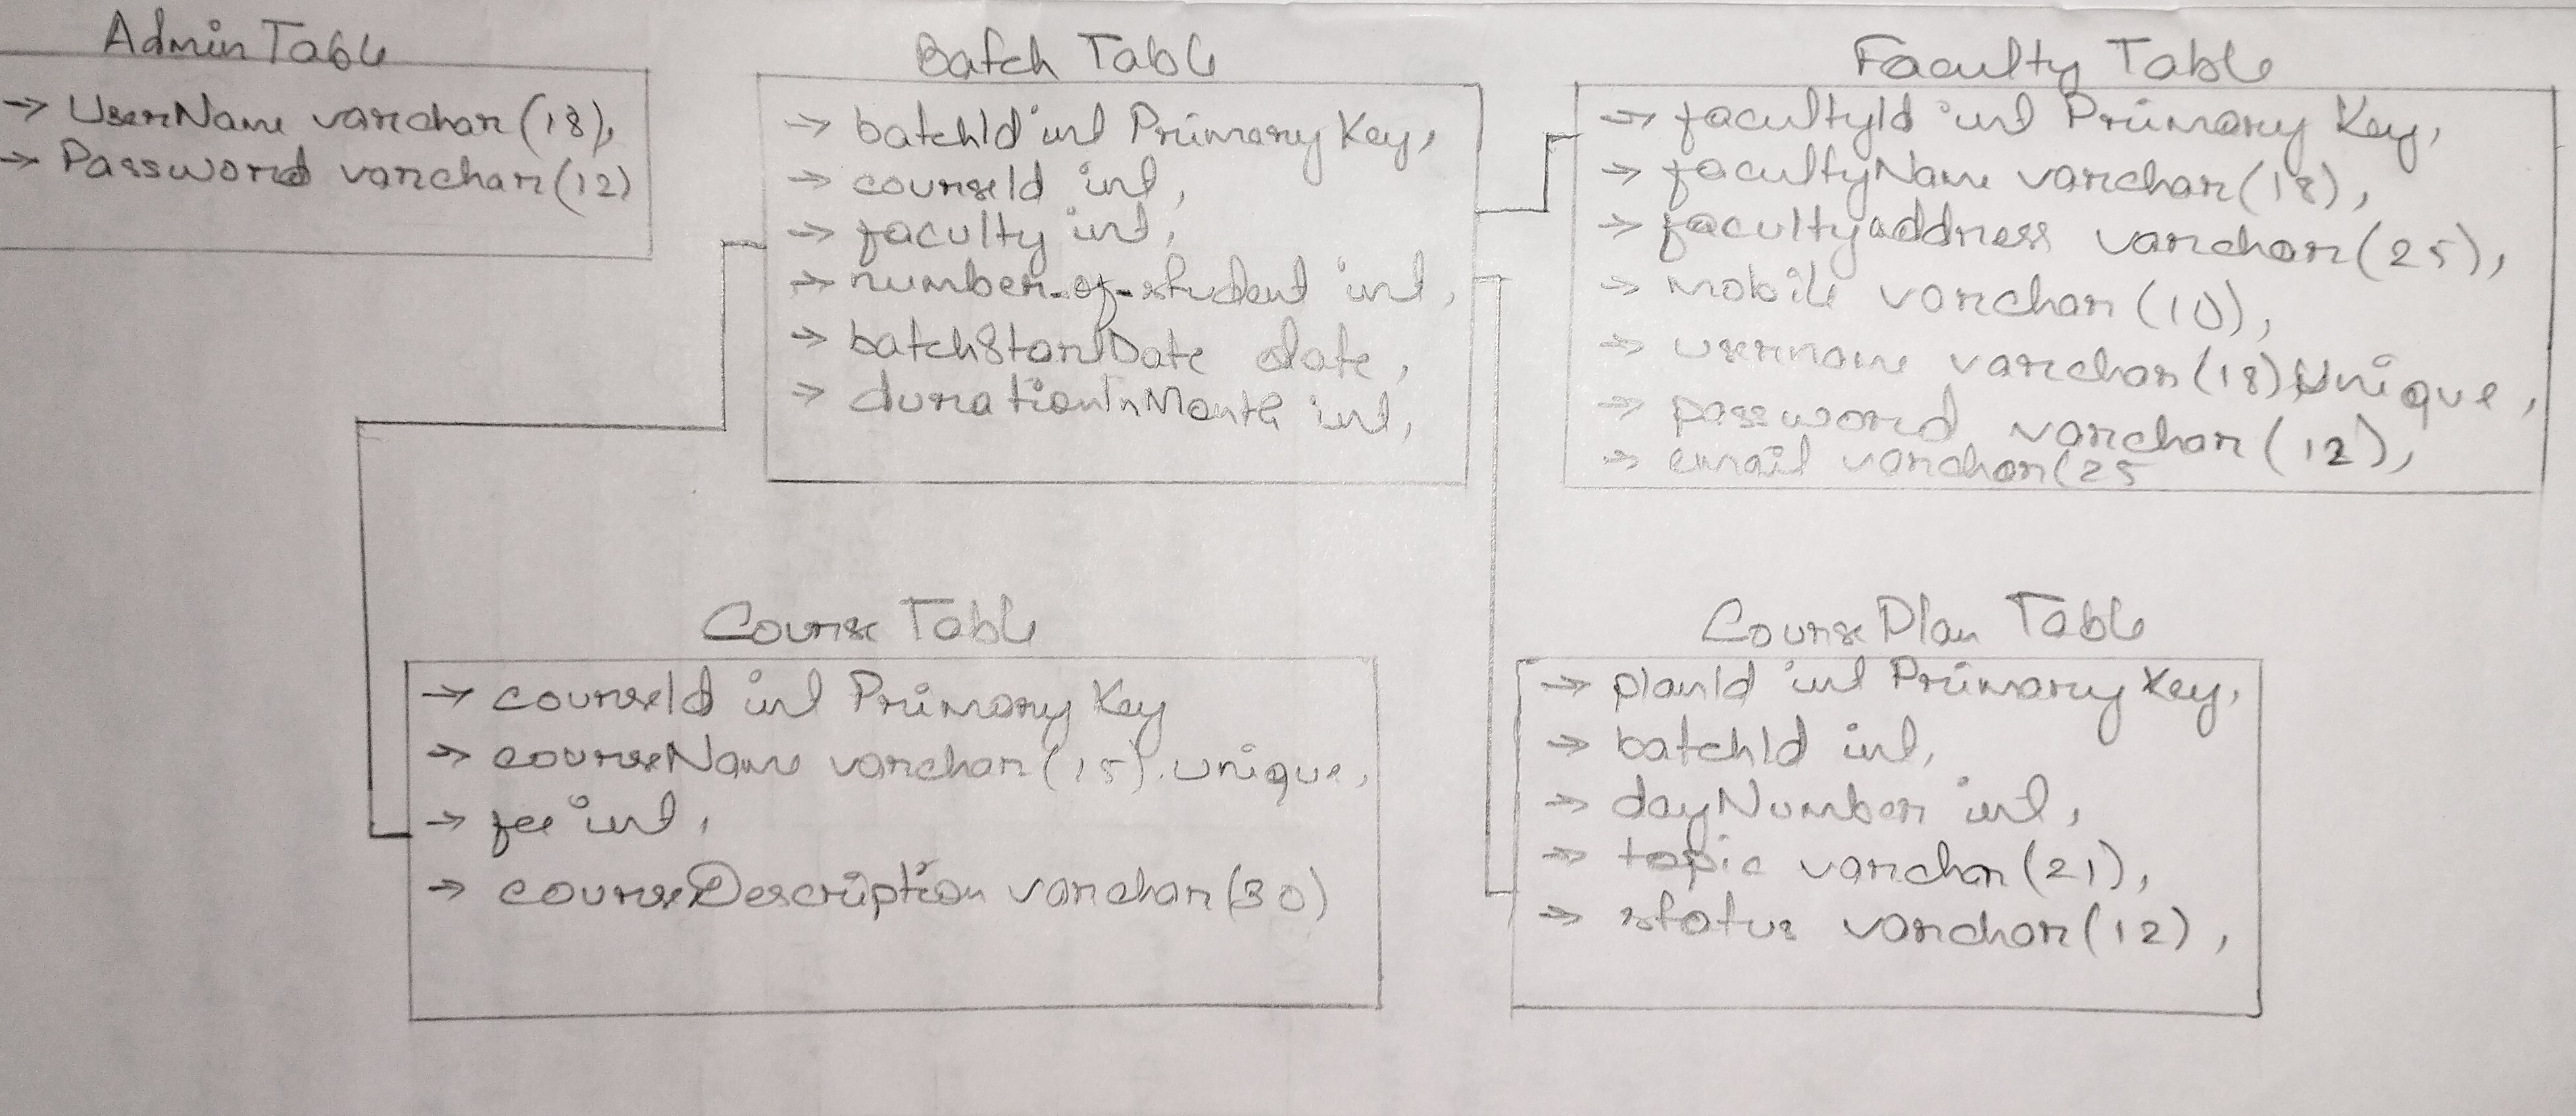 Admin Table
→ UserName varchar(18),
→ Password varchar(12)
Batch Table
→ batchId int Primary Key,
→ courseId int,
→ faculty int,
→ number-of-student int,
→ batchStartDate date,
→ durationInMonth int,
Faculty Table
→ facultyId int Primary Key,
→ facultyName varchar(18),
→ facultyaddress varchar(25),
→ mobile varchar(10),
→ username varchar(18) Unique,
→ password varchar(12),
→ email varchar(25
Course Table
→ courseId int Primary Key
→ courseName varchar(15) unique,
→ fee int,
→ courseDescription varchar(30)
Course Plan Table
→ planId int Primary Key,
→ batchId int,
→ dayNumber int,
→ topic varchar(21),
→ status varchar(12),